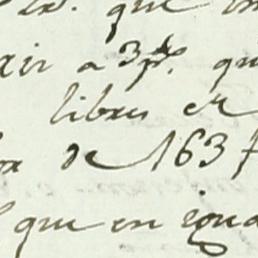 que
xir a 3 p. qu
libres er
de 1637
que en igua